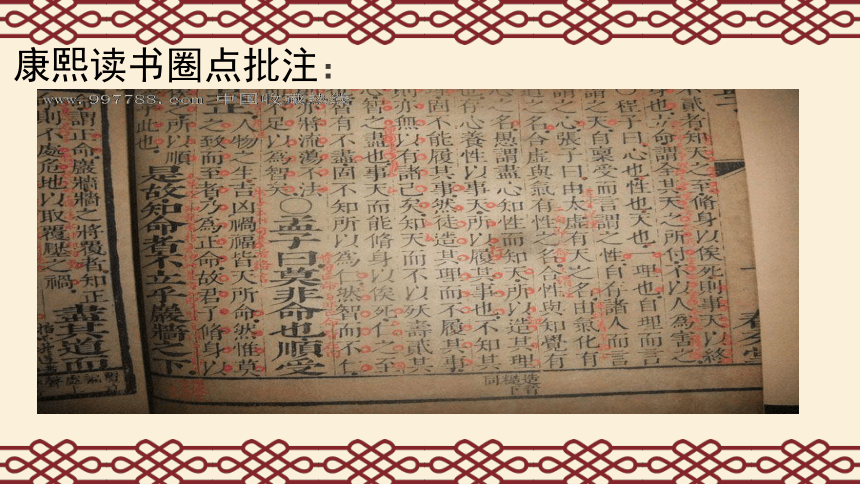 康熙读书圈点批注：
www.997788.com 中国收藏热线
不貳者知天之至脩身以俟死則事天以終
身也立命謂全其天之所付不以人為害之
○程子曰心也性也天也一理也自理而言
謂之天自稟受而言謂之性自存諸人而言
謂之心張子曰由太虛有天之名由氣化有
道之名合虛與氣有性之名合性與知覺有
心之名愚謂盡心知性而知天所以造其理
也存心養性以事天所以履其事也不知其
理固不能履其事然徒造其理而不履其事
則亦無以有諸己矣知天而不以殀壽貳其
心智之盡也事天而能脩身以俟死仁之至
智有不盡固不知所以為仁然智而不仁
將流蕩不法○孟子曰莫非命也順受
足以為智矣
其正人物之生吉凶禍福皆天所命然惟莫
之致而至者乃為正命故君子脩身以
所以順
乎此也是故知命者不立乎巖牆之下
謂正命巖牆牆之將覆者知正
則不處危地以取覆壓之禍盡其道而